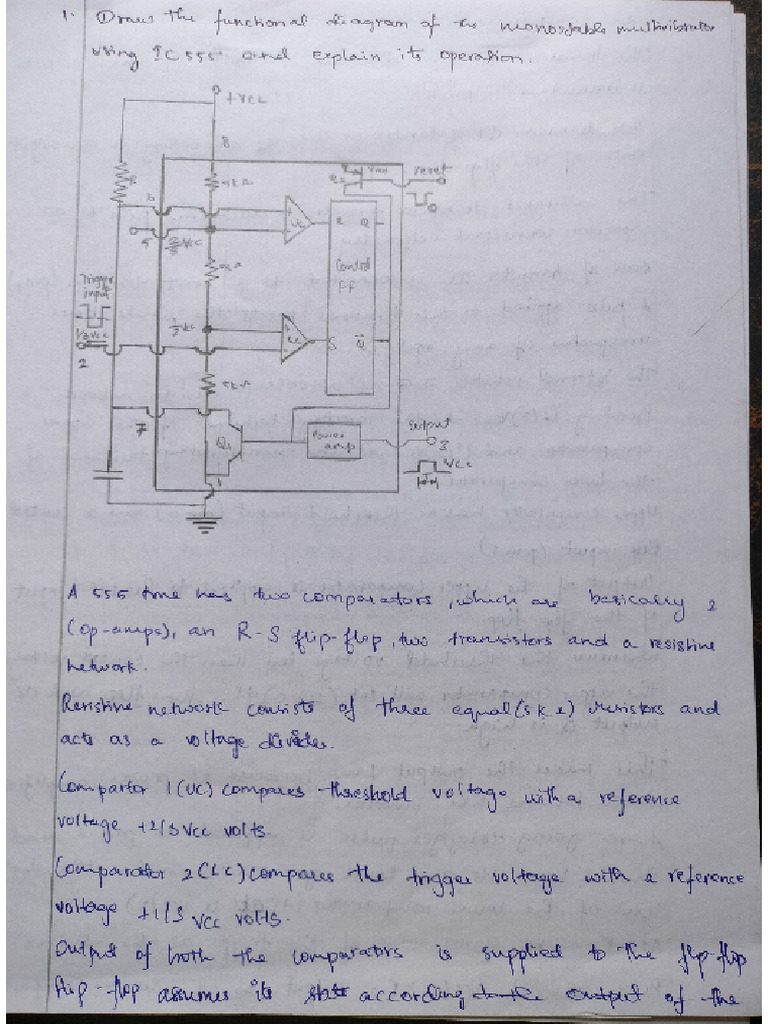 1. Draw the functional diagram of the monostable multivibrator
using IC 555 and explain its operation.
+VCC
8
R
5kΩ
Q2
Vref
reset
6
5
2/3 VCC
UC
R
Q
Control
FF
Trigger
input
1/3 VCC
2
1/3 VCC
LC
S
Q̄
5kΩ
7
Q1
Power
amp
output
3
VCC
1
A 555 time has two comparators, which are basically 2
(op-amps), an R-S flip-flop, two transistors and a resistine
network.
Resistine network consists of three equal (5kΩ) resistors and
acts as a voltage divider.
Compartor 1(UC) compares threshold voltage with a reference
voltage +2/3 VCC volts.
Comparator 2(LC) compares the trigger voltage with a reference
voltage +1/3 VCC volts.
Output of both the comparators is supplied to the flip-flip
flip-flop assumes its state according to the output of the